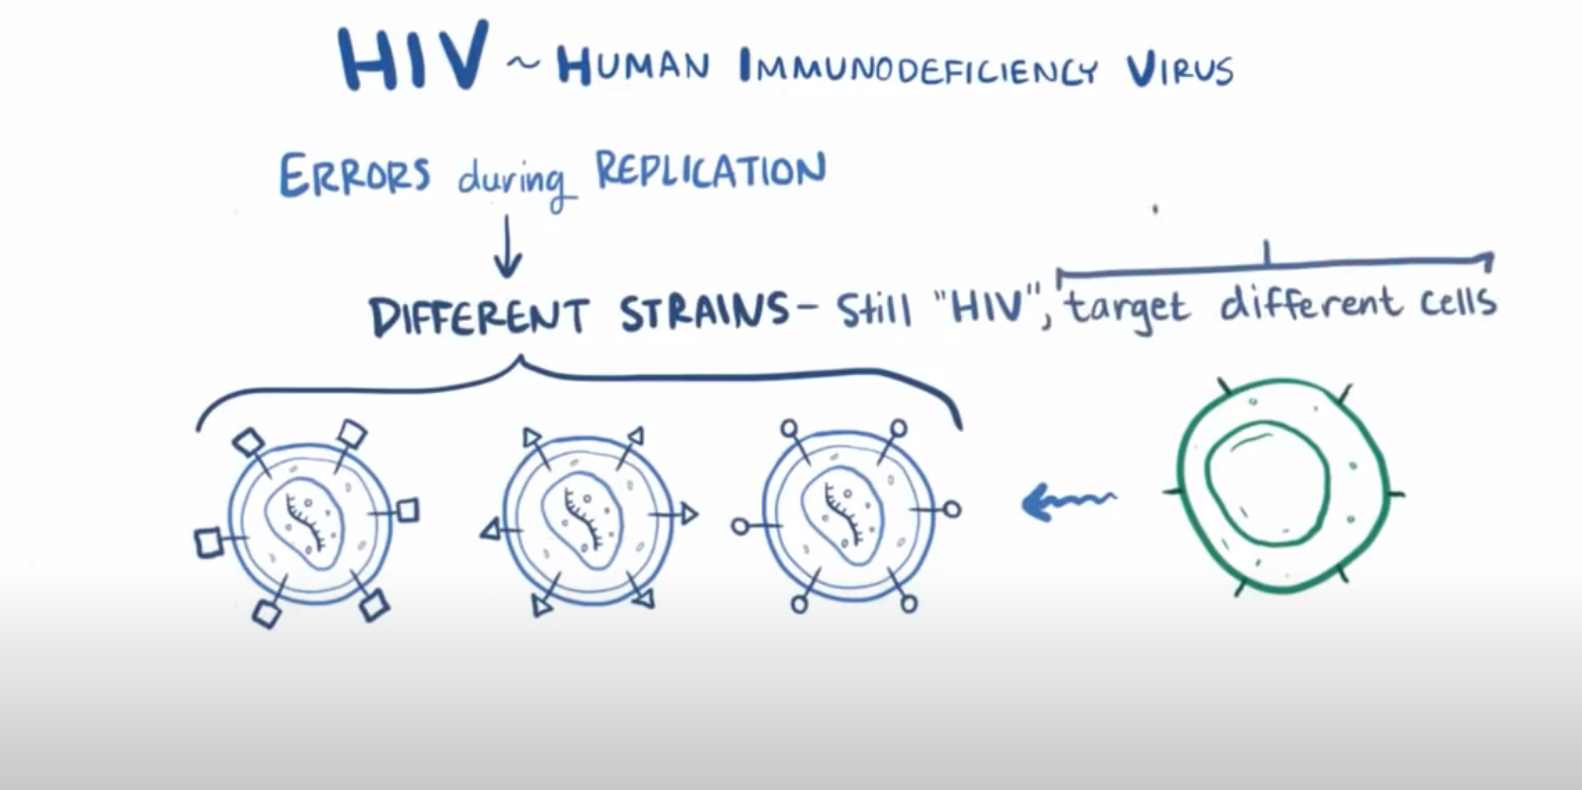 HIV ~ HUMAN IMMUNODEFICIENCY VIRUS
ERRORS during REPLICATION
DIFFERENT STRAINS - Still "HIV", target different cells